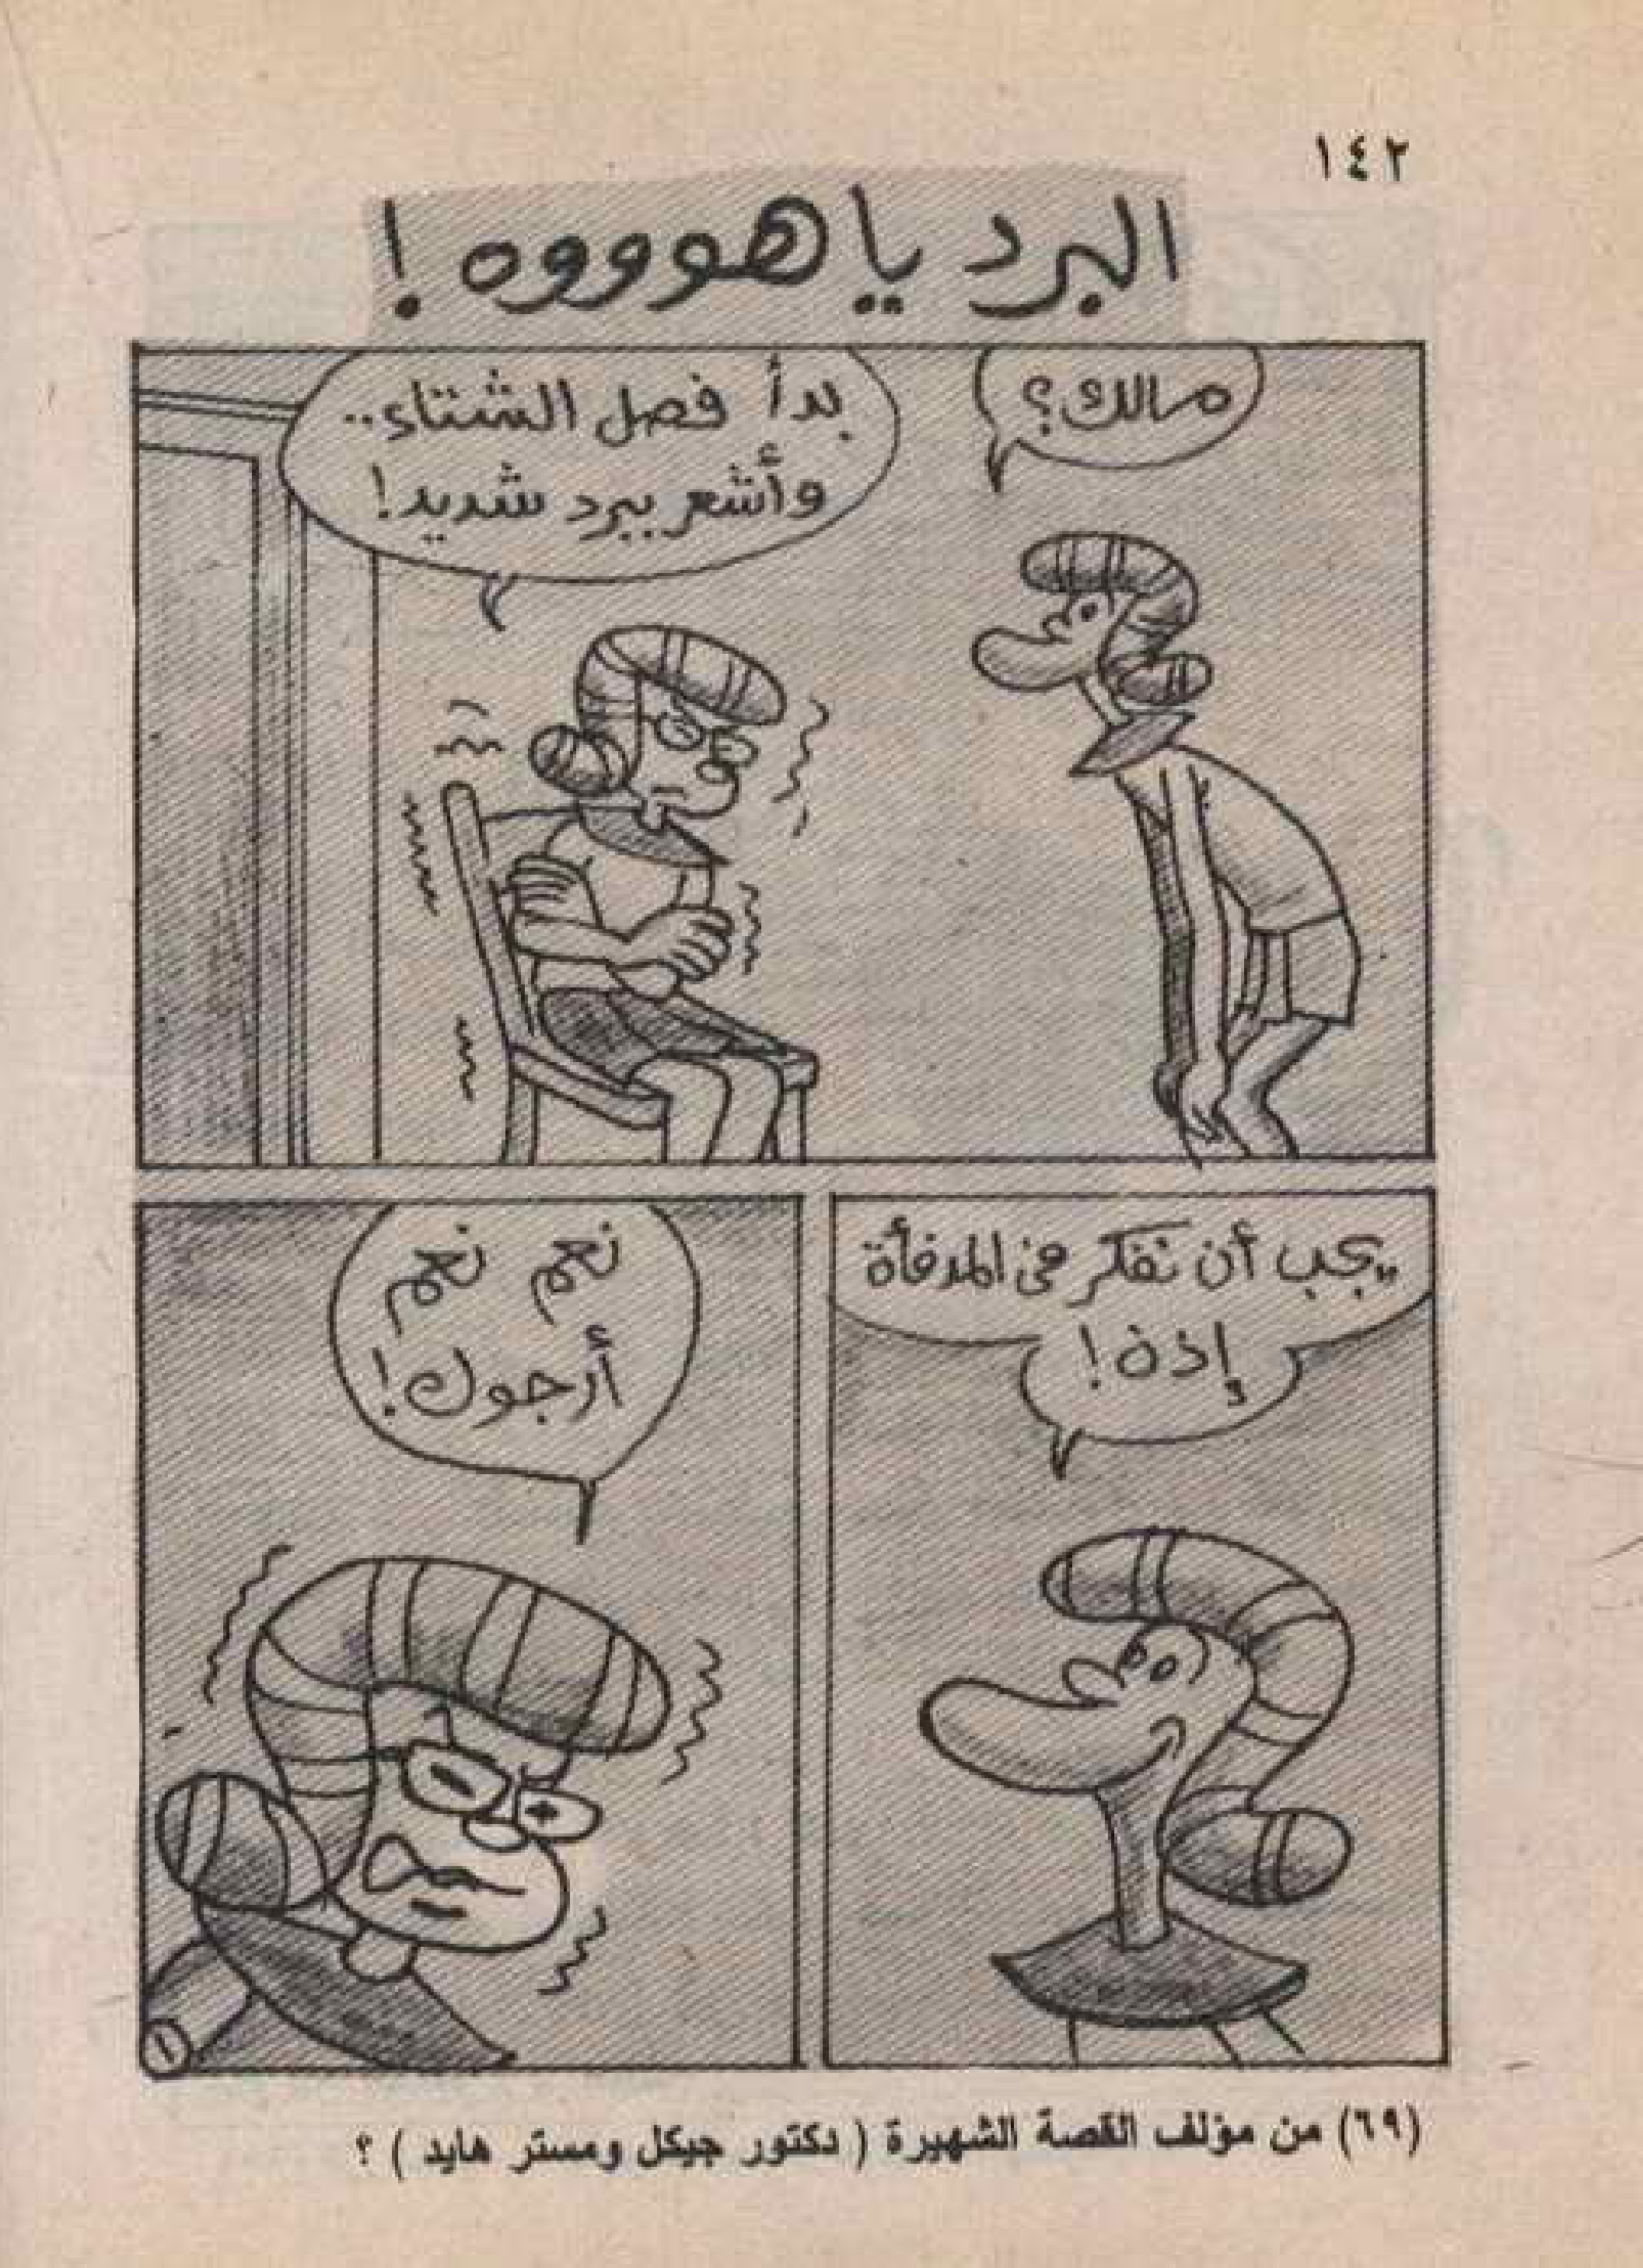 ١٤٢
البرد ياهوووه !
مالك؟
بدأ فصل الشتاء..
وأشعر ببرد شديد!
يجب أن نفكر فى المدفأة
إذن!
نعم نعم
أرجوك!
١
(٦٩) من مؤلف القصة الشهيرة ( دكتور جيكل ومستر هايد ) ؟